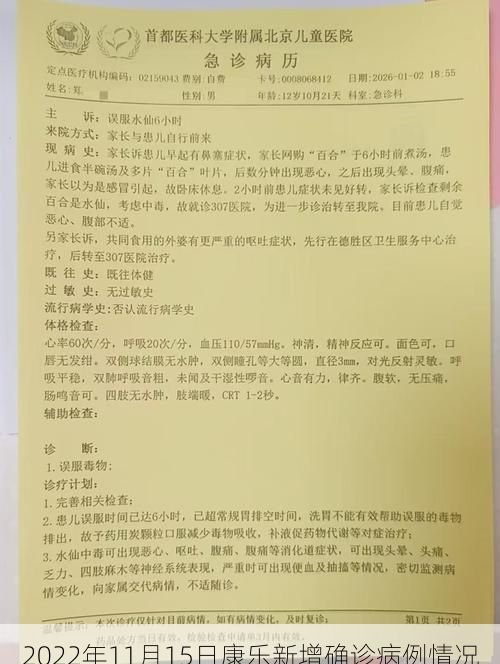 首都医科大学附属北京儿童医院
急诊病历
定点医疗机构编码: 02159043 费别:自费 卡号:0008068412 日期:2026-01-02 18:55
姓名:郑 性别:男 年龄:12岁10月21天 科室:急诊科
主 诉: 误服水仙6小时
来院方式: 家长与患儿自行前来
现 病 史: 家长诉患儿早起有鼻塞症状, 家长网购“百合”于6小时前煮汤, 患
儿进食半碗汤及多片“百合”叶片, 后数分钟出现恶心, 之后出现头晕、腹痛,
家长以为是感冒引起, 故卧床休息。2小时前患儿症状未见好转, 家长诉检查剩余
百合是水仙, 考虑中毒, 故就诊307医院, 为进一步诊治转至我院。目前患儿自觉
恶心、腹部不适。
另家长诉, 共同食用的外婆有更严重的呕吐症状, 先行在德胜区卫生服务中心治
疗, 后转至307医院治疗。
既 往 史: 既往体健
过 敏 史: 无过敏史
流行病学史:否认流行病学史
体格检查:
心率60次/分, 呼吸20次/分, 血压110/57mmHg。神清, 精神反应可。面色可, 口
唇无发绀。双侧球结膜无水肿, 双侧瞳孔等大等圆, 直径3mm, 对光反射灵敏。呼
吸平稳, 双肺呼吸音粗, 未闻及干湿性啰音。心音有力, 律齐。腹软, 无压痛,
肠鸣音可。四肢无水肿, 肢端暖, CRT 1-2秒。
辅助检查:
诊 断:
1.误服毒物;
诊疗计划:
1.完善相关检查;
2.患儿误服时间已达6小时, 已超常规胃排空时间, 洗胃不能有效帮助误服的毒物
排出, 故予药用炭颗粒口服减少毒物吸收, 补液促药物代谢等对症治疗;
3.水仙中毒可出现恶心、呕吐、腹痛、腹痛等消化道症状, 可出现头晕、头痛、
乏力、四肢麻木等神经系统表现, 严重时可出现便血及抽搐等情况, 密切监测病
情变化, 向家属交代病情, 不适随诊。
温馨提示: 本次诊疗仅针对目前病情, 如有病情变化, 及时复诊; 第1页 共2页
2022年11月15日康乐新增确诊病例情况